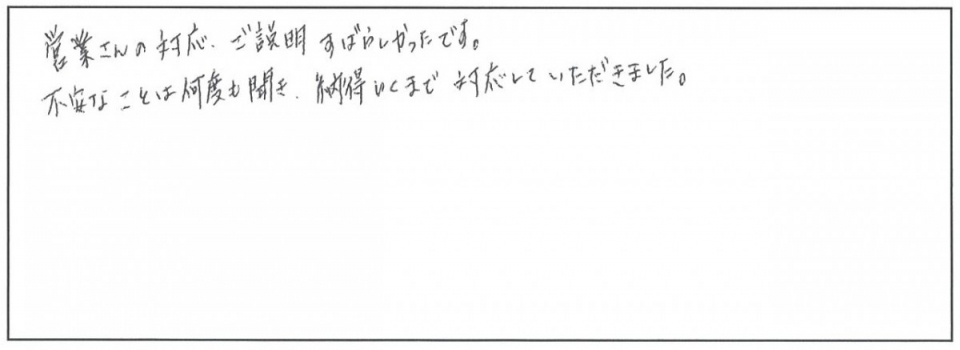 営業さんの対応、ご説明すばらしかったです。
不安なことは何度も聞き、納得いくまで対応していただきました。